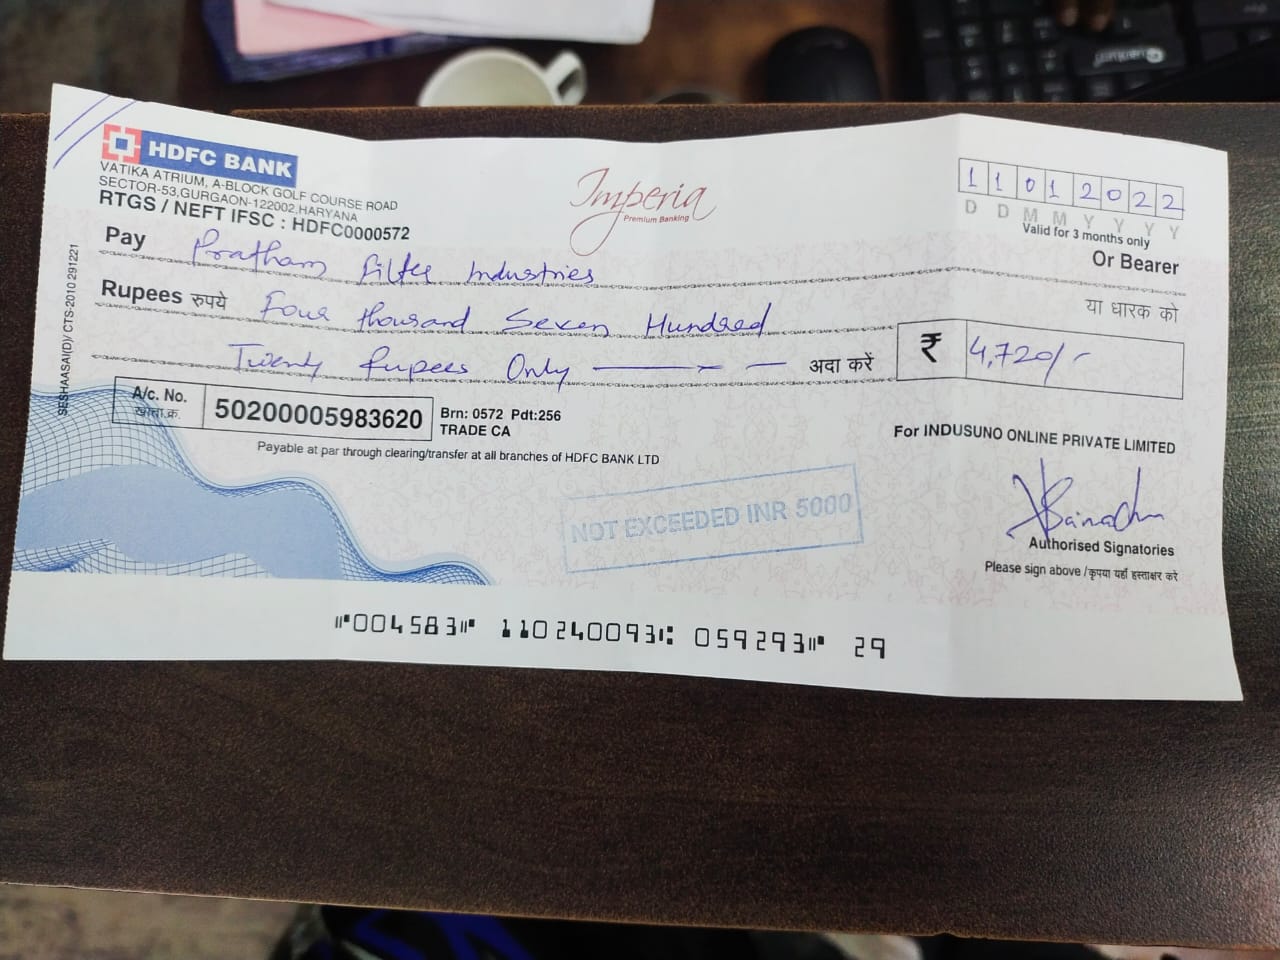 HDFC BANK
VATIKA ATRIUM, A-BLOCK GOLF COURSE ROAD
SECTOR-53,GURGAON-122002,HARYANA
RTGS / NEFT IFSC : HDFC0000572
Imperia
Premium Banking
1 1 0 1 2 0 2 2
D D M M Y Y Y Y
Valid for 3 months only
Pay Pratham Filter Industries
Or Bearer
या धारक को
Rupees रुपये Four thousand Seven Hundred
Twenty Rupees Only अदा करें
₹ 4,720/-
A/c. No.
खाता.क्र.
50200005983620
Brn: 0572 Pdt:256
TRADE CA
Payable at par through clearing/transfer at all branches of HDFC BANK LTD
For INDUSUNO ONLINE PRIVATE LIMITED
NOT EXCEEDED INR 5000
Authorised Signatories
Please sign above /कृपया यहाँ हस्ताक्षर करें
SESHAASAI(D)/ CTS-2010 291221
⑈004583⑈ 110240093⑆ 059293⑈ 29